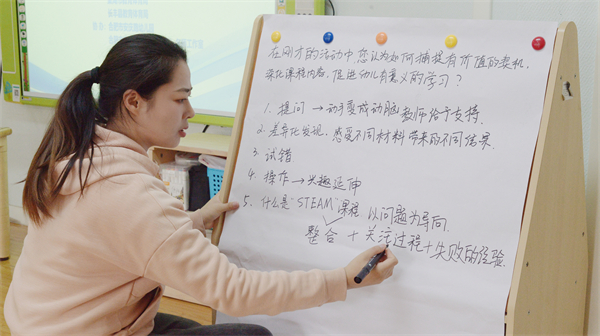 在刚才的活动中您认为如何捕捉有价值的契机,
深化课程内容,促进幼儿有意义的学习?
1. 提问 → 动手变成动脑 教师给予支持.
2. 差异化发现,感受不同材料带来的不同结果.
3. 试错
4. 操作 → 兴趣延伸
5. 什么是"STEAM"课程 以问题为导向.
整合 + 关注过程 + 失败的经验.